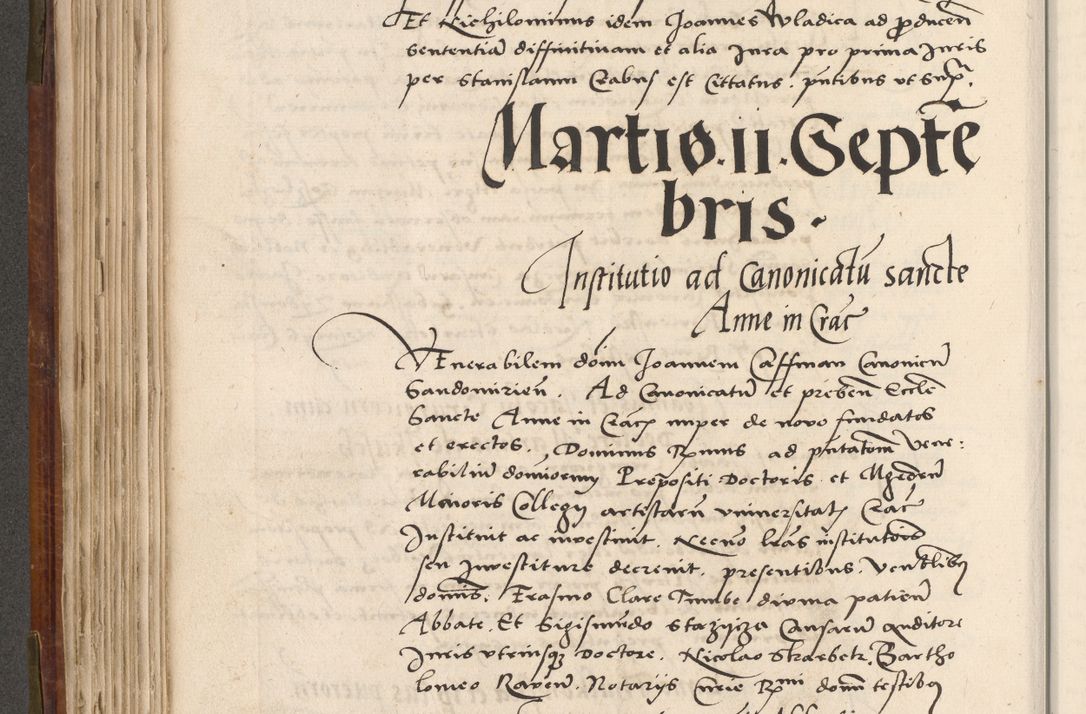 Et Nichilominus idem Joannes Wladica ad producen̄
sententiā diffinitinam et alia Jura pro prima Juris
per Stanislaum Crabus est Cittatus. pn̄tibus ut supͣ.
Martio. ii. Septē
bris.
Institutio ad Canonicatū sancte
Anne in Crac̄
VEnerabilem dom̄ Joannem Caffman Canonicū
Sandomirien̄. Ad Canonicatū et preben̄ Eccle
Sancte Anne in Crac̄ nuper de novo fundatos
et erectos. Dominus Rmus ad pn̄tationē Vene:
rabiliū dominorum Prepositi Doctoris et Mgrorū
Minoris Collegij artistarū universitatis Crac̄
Instituit ac investivit. Necnō lr̄as institutōis
seu Investiture decrevit. presentibus. Ven̄libus
domīs: Erasmo Clare Tumbe divina patien̄
Abbate. Et Sigismūdo Stazycza Causarū auditore
Juris utriusqȝ Doctore. Nicolao Skarbek, Bartho
lomeo Raven̄. Notarijs Curie Rmi domī testibus